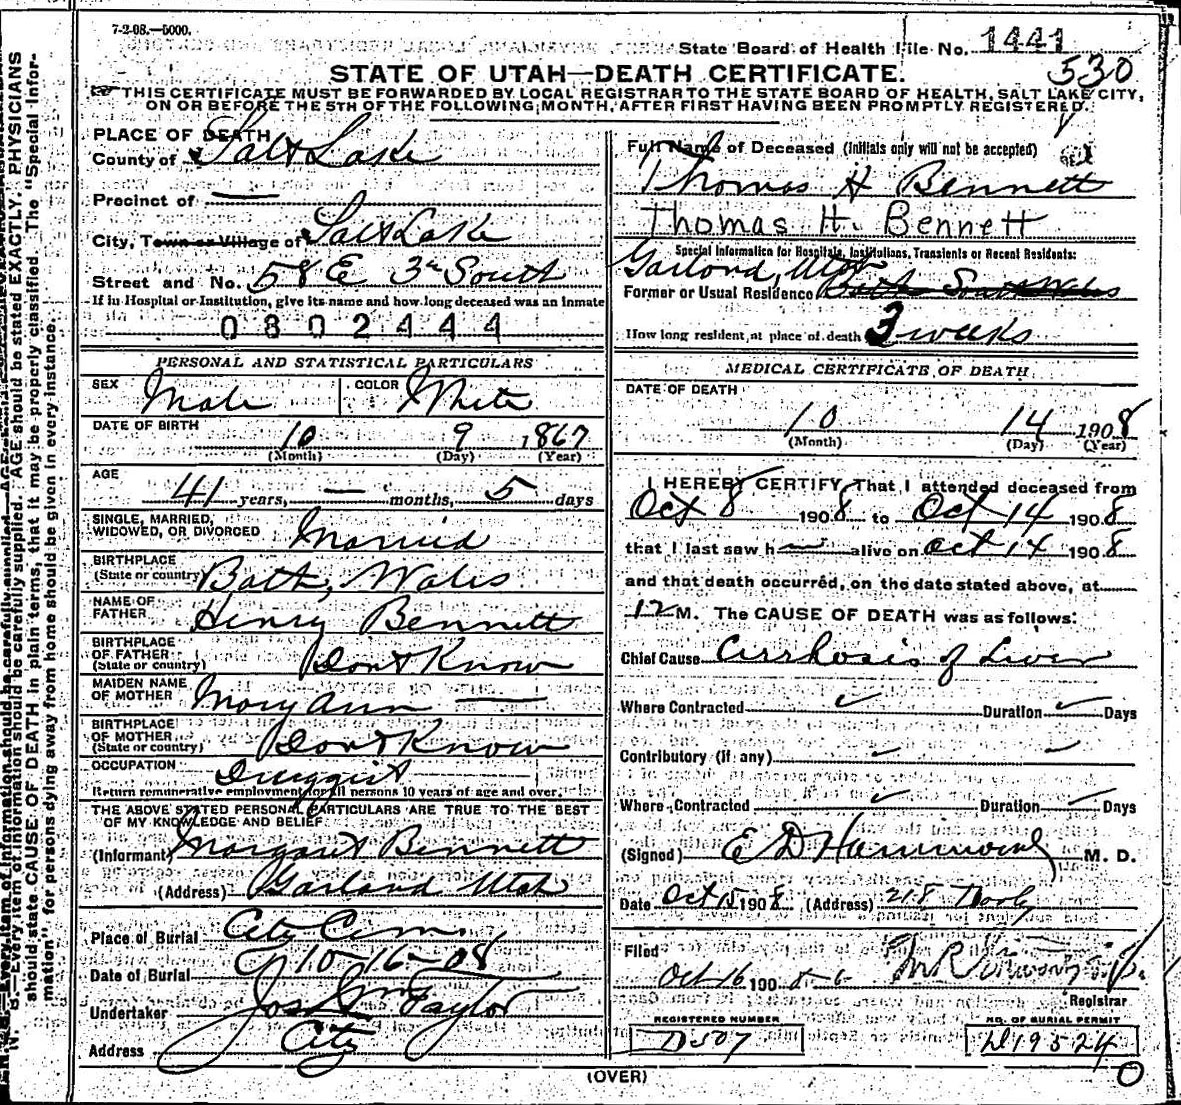 7-2-08.—5000.
State Board of Health File No. 1441
530
STATE OF UTAH—DEATH CERTIFICATE.
THIS CERTIFICATE MUST BE FORWARDED BY LOCAL REGISTRAR TO THE STATE BOARD OF HEALTH, SALT LAKE CITY,
ON OR BEFORE THE 5TH OF THE FOLLOWING MONTH, AFTER FIRST HAVING BEEN PROMPTLY REGISTERED.
N. B.—Every item of information should be carefully supplied. AGE should be stated EXACTLY. PHYSICIANS
should state CAUSE OF DEATH in plain terms, that it may be properly classified. The "Special Infor-
mation" for persons dying away from home should be given in every instance.
PLACE OF DEATH
County of Salt Lake
Precinct of —
City, Town or Village of Salt Lake
Street and No. 58 E 3rd South
If in Hospital or Institution, give its name and how long deceased was an inmate
0802444
PERSONAL AND STATISTICAL PARTICULARS
SEX Male COLOR White
DATE OF BIRTH
10 9 1867
(Month) (Day) (Year)
AGE
41 years, — months, 5 days
SINGLE, MARRIED,
WIDOWED, OR DIVORCED Married
BIRTHPLACE
(State or country) Bath, Wales
NAME OF
FATHER Henry Bennett
BIRTHPLACE
OF FATHER
(State or country) Dont Know
MAIDEN NAME
OF MOTHER Mary Ann —
BIRTHPLACE
OF MOTHER
(State or country) Dont Know
OCCUPATION Druggist
Return remunerative employment for all persons 10 years of age and over.
THE ABOVE STATED PERSONAL PARTICULARS ARE TRUE TO THE BEST
OF MY KNOWLEDGE AND BELIEF
(Informant) Margaret Bennett
(Address) Garland Utah
Place of Burial City Cem.
Date of Burial 10-16-08
Undertaker Jos Wm Taylor
Address City
Full Name of Deceased (Initials only will not be accepted)
Thomas H Bennett
Thomas H. Bennett
Special Information for Hospitals, Institutions, Transients or Recent Residents:
Garland, Utah
Former or Usual Residence Bath South Wales
How long resident at place of death 3 weeks
MEDICAL CERTIFICATE OF DEATH
DATE OF DEATH
10 14 1908
(Month) (Day) (Year)
I HEREBY CERTIFY, That I attended deceased from
Oct 8 1908 to Oct 14 1908
that I last saw h— alive on Oct 14 1908
and that death occurred, on the date stated above, at
12 M. The CAUSE OF DEATH was as follows:
Chief Cause Cirrhosis of Liver
Where Contracted Duration Days
Contributory (if any)
Where Contracted Duration Days
(Signed) E D Hammond M. D.
Date Oct 15 1908 (Address) 218 Dooly
Filed
Oct 16 190
Registrar
REGISTERED NUMBER
D507
NO. OF BURIAL PERMIT
D19524
(OVER)